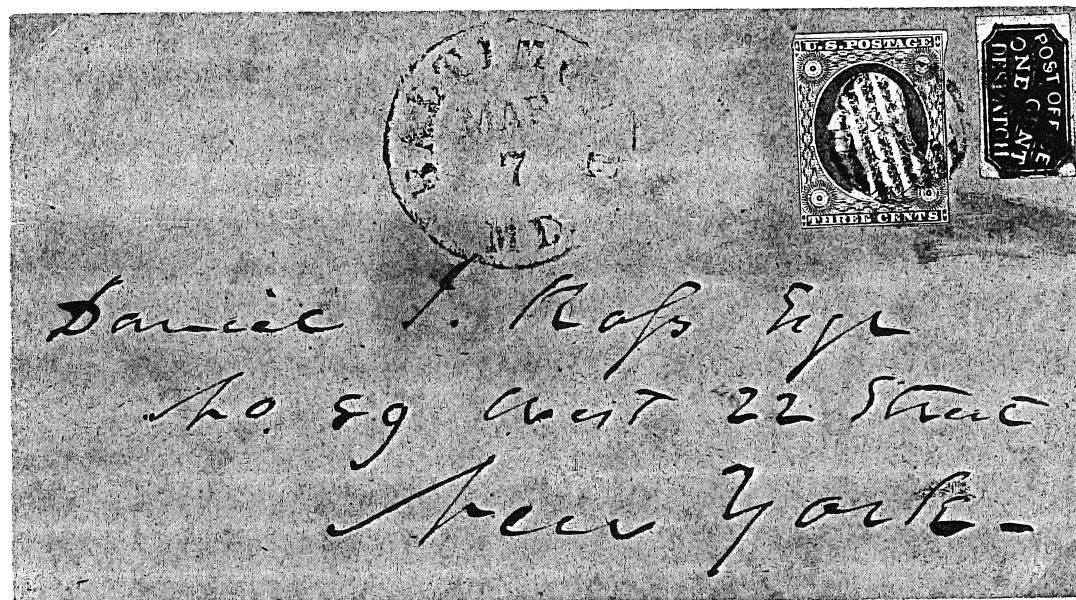 MAR
7
MD.
U.S. POSTAGE
THREE CENTS
POST OFF
ONE
DESPATCH
Daniel J. Ross Esqr
No. 59 West 22 Street
New York -